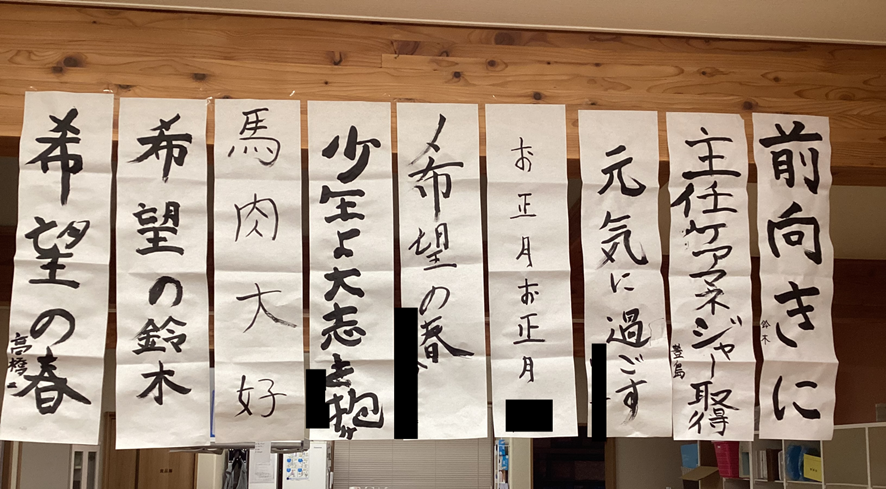 前向きに
鈴木
主任ケアマネジャー取得
豊島
元気に過ごす
お正月お正月
希望の春
少年よ大志を抱け
馬肉大好
希望の鈴木
希望の春
高橋